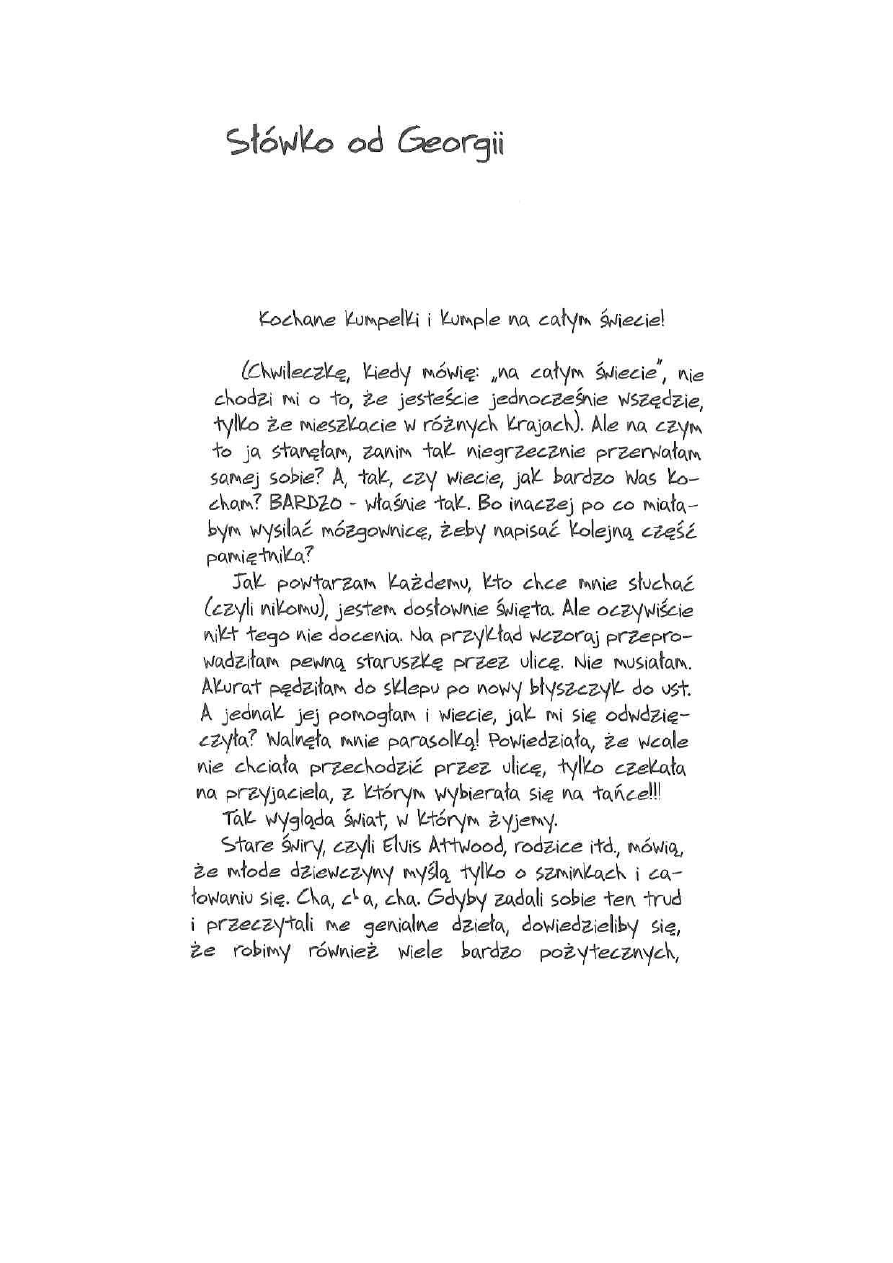 Słówko od Georgii
Kochane kumpelki i kumple na całym świecie!
(Chwileczkę, kiedy mówię: „na całym świecie”, nie
chodzi mi o to, że jesteście jednocześnie wszędzie,
tylko że mieszkacie w różnych krajach). Ale na czym
to ja stanęłam, zanim tak niegrzecznie przerwałam
samej sobie? A, tak, czy wiecie, jak bardzo Was ko-
cham? BARDZO - właśnie tak. Bo inaczej po co miała-
bym wysilać mózgownicę, żeby napisać kolejną część
pamiętnika?
Jak powtarzam każdemu, kto chce mnie słuchać
(czyli nikomu), jestem dosłownie święta. Ale oczywiście
nikt tego nie docenia. Na przykład wczoraj przepro-
wadziłam pewną staruszkę przez ulicę. Nie musiałam.
Akurat pędziłam do sklepu po nowy błyszczyk do ust.
A jednak jej pomogłam i wiecie, jak mi się odwdzię-
czyła? Walnęła mnie parasolką! Powiedziała, że wcale
nie chciała przechodzić przez ulicę, tylko czekała
na przyjaciela, z którym wybierała się na tańce!!!
Tak wygląda świat, w którym żyjemy.
Stare świry, czyli Elvis Attwood, rodzice itd., mówią,
że młode dziewczyny myślą tylko o szminkach i ca-
łowaniu się. Cha, cha, cha. Gdyby zadali sobie ten trud
i przeczytali me genialne dzieła, dowiedzieliby się,
że robimy również wiele bardzo pożytecznych,